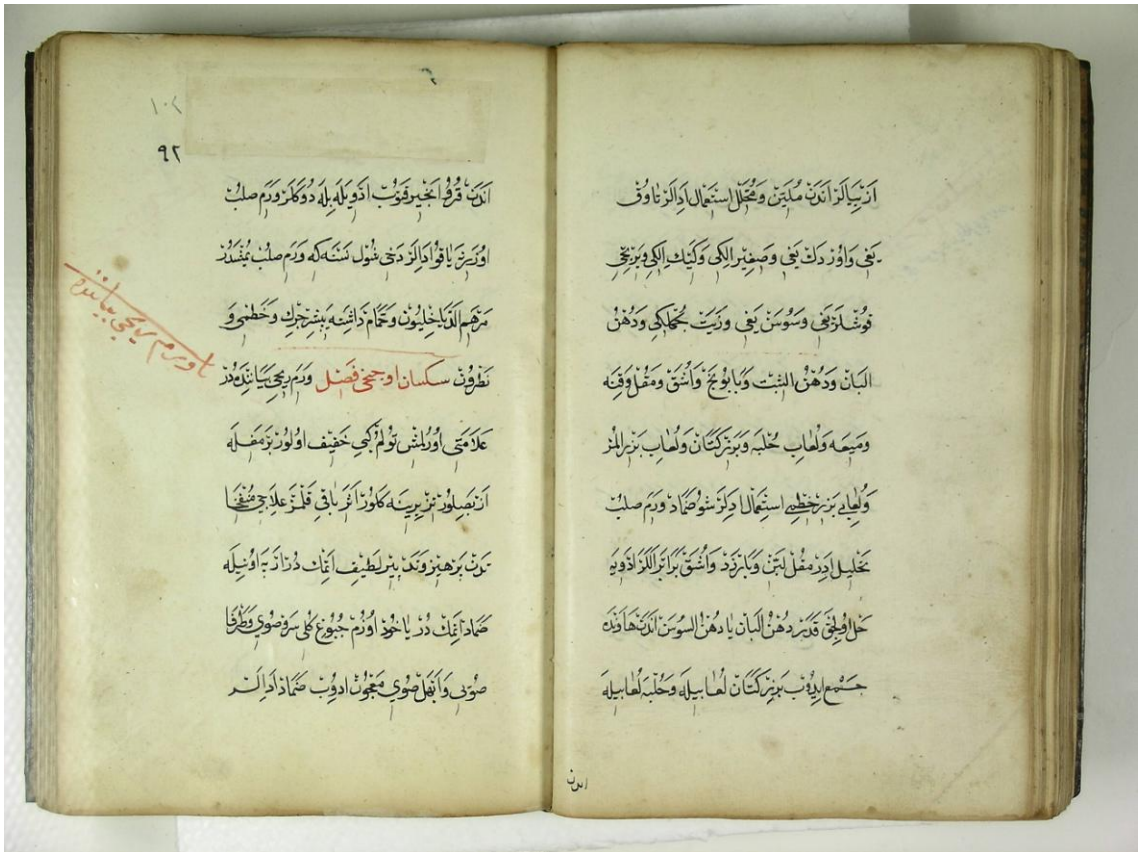 از بيالر اندن ملين و محلل استعمال ادالر تاوق
يغى و اوردك يغى و صغير الكى و كيك الكى و يرتجى
قوشلر يغى و سوسن يغى و زيت كماكى و دهن
البان و دهن الثبت و بابونج و اشق و مقل و قنه
و ميعه و لعاب حلبه و بزر كتان و لعاب بزر المر
و لعاب بزر خطمى استعمال ادلر شو ضماد ورم صلب
تحليل ادر مقل لبن و بارزد و اشق برابر اللر ادويه
حل اولنجق قدر دهن البان يا دهن السوسن اندن هاونده
جمع ايدوب بزر كتان لعابيله و حلبه لعابيله
اندن
١٠٢
٩٢
اندن قرو انجير قويوب ادويله بله دوكلر ورم صلب
اوزرينه ياقو ادالر دخى شول نسنه كه ورم صلب يمشدر
مرهم الدياخليون و حمام داشنه بيشر جرك و خطمى و
نطرون سكسان اوجنجى فصل ورم ريحى بياننده در
علامتى اورلمش تولم كبى خفيف اولور برمقله
از بصلور تيز يرينه كلور اثر باقى قلمز علاجى منفخا
تدن پرهيز و تدبير لطيف اتمك در ازبه اونيله
ضماد اتمك در ياخود اوزم جبوغ كلى سرو صوى و طرفا
صويى و ابهل صوى معجون ادوب ضماد ادالر
تا ورم ريحى بياننده